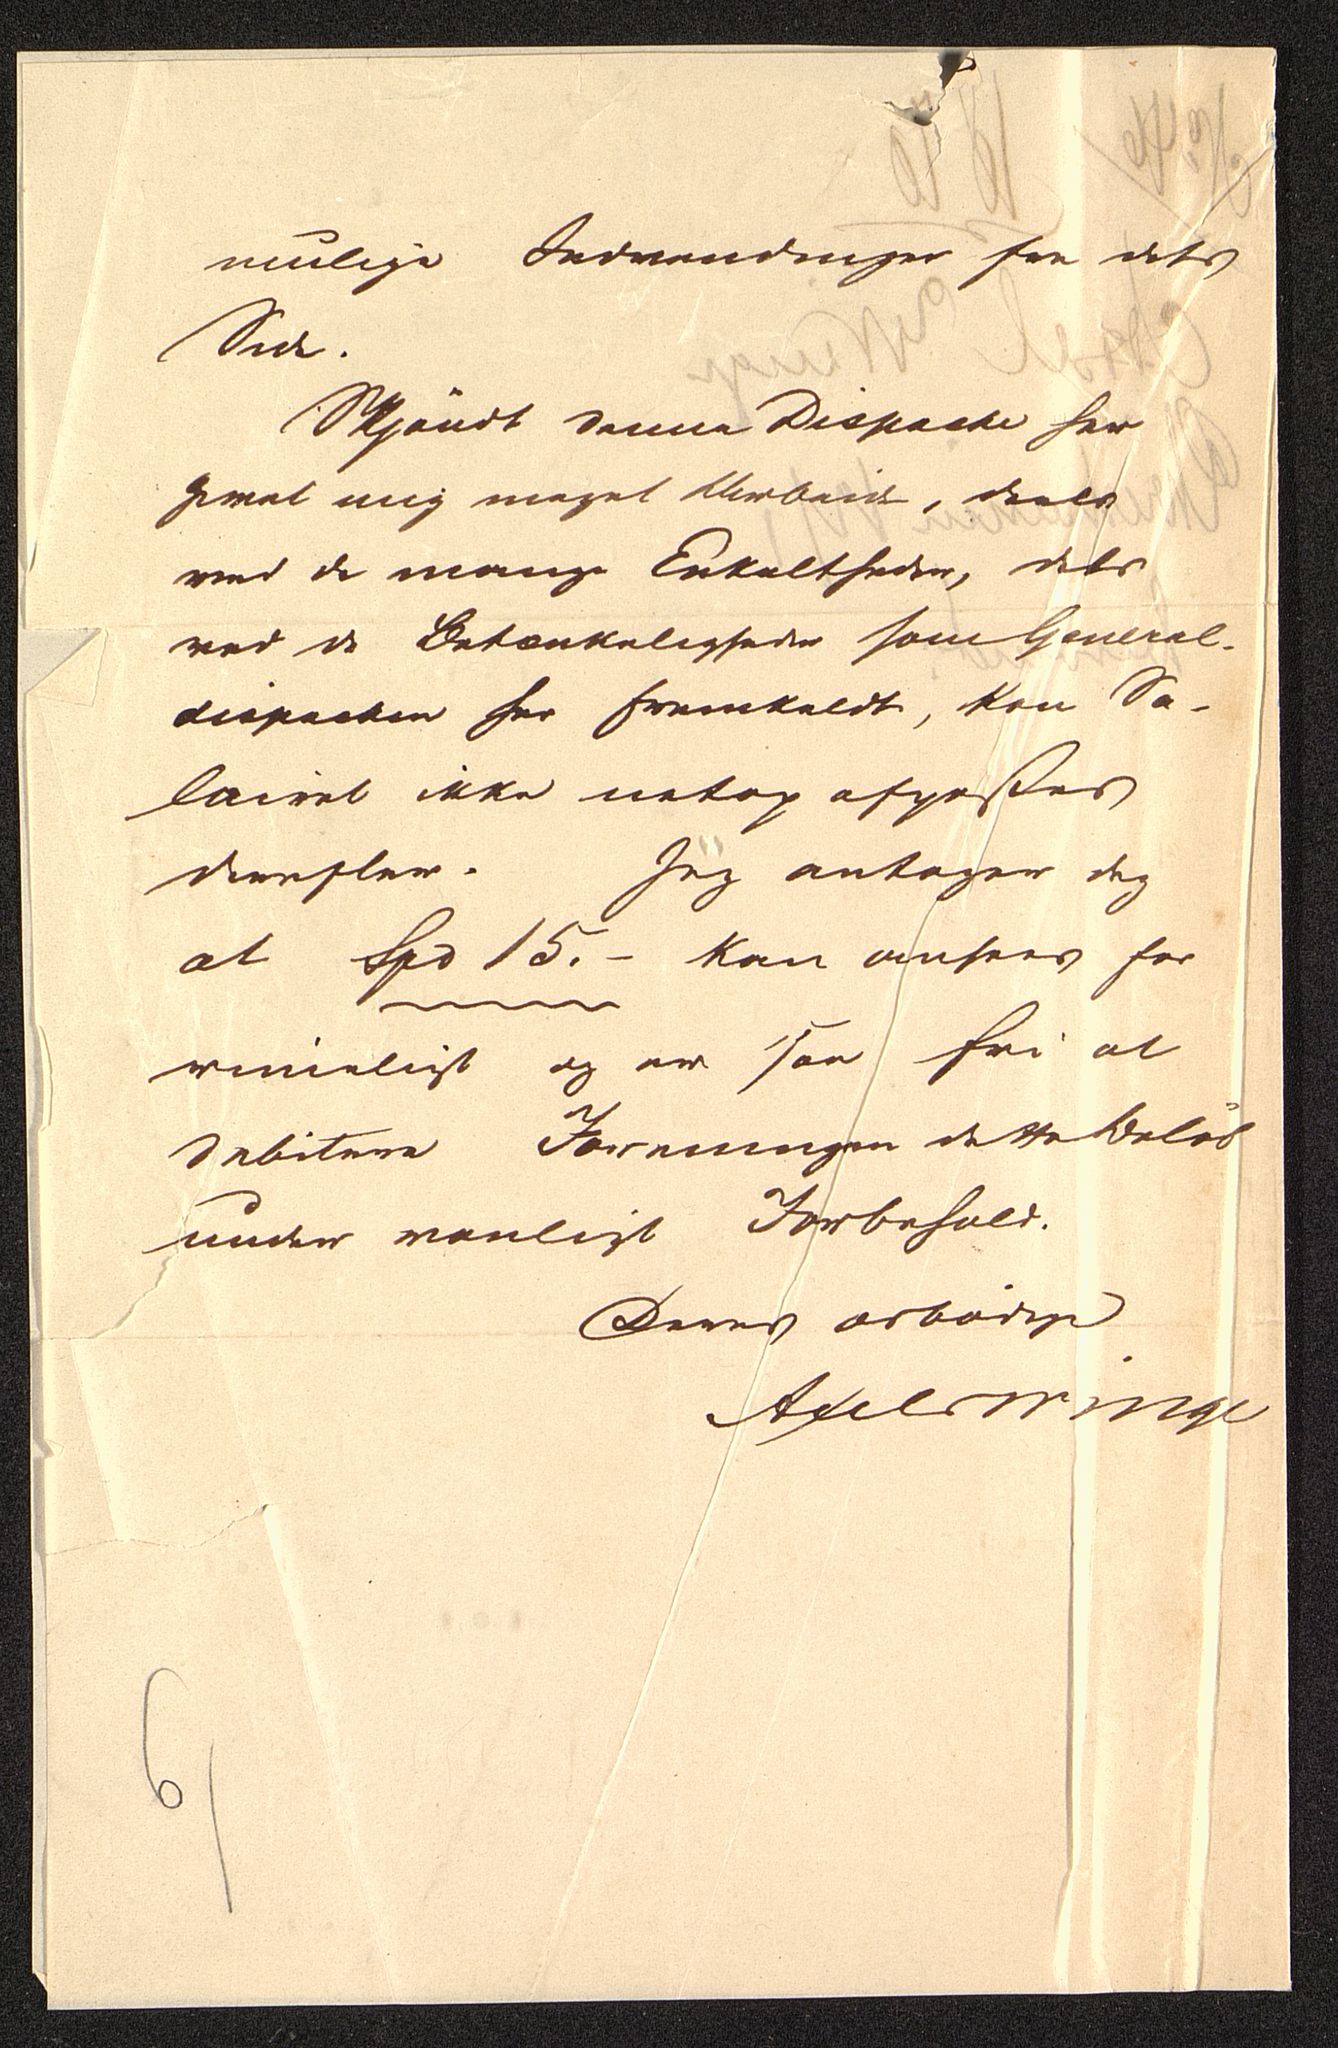 mulige Indvendinger fra dets
Side.
Skjöndt denne Dispache har
givet mig meget Arbeide, deels
ved de mange Enkeltheder, dels
ved de Betænkeligheder som General-
dispachen har fremkaldt, kan Sa-
lairet ikke netop afpasses
derefter. Jeg antager dog
at Spd 15.- kan ansees for
rimeligt og er saa fri at
debitere Foreningen dette Beløb
under vanligt Forbehold.
Deres ærbödige
Axel Winge
61